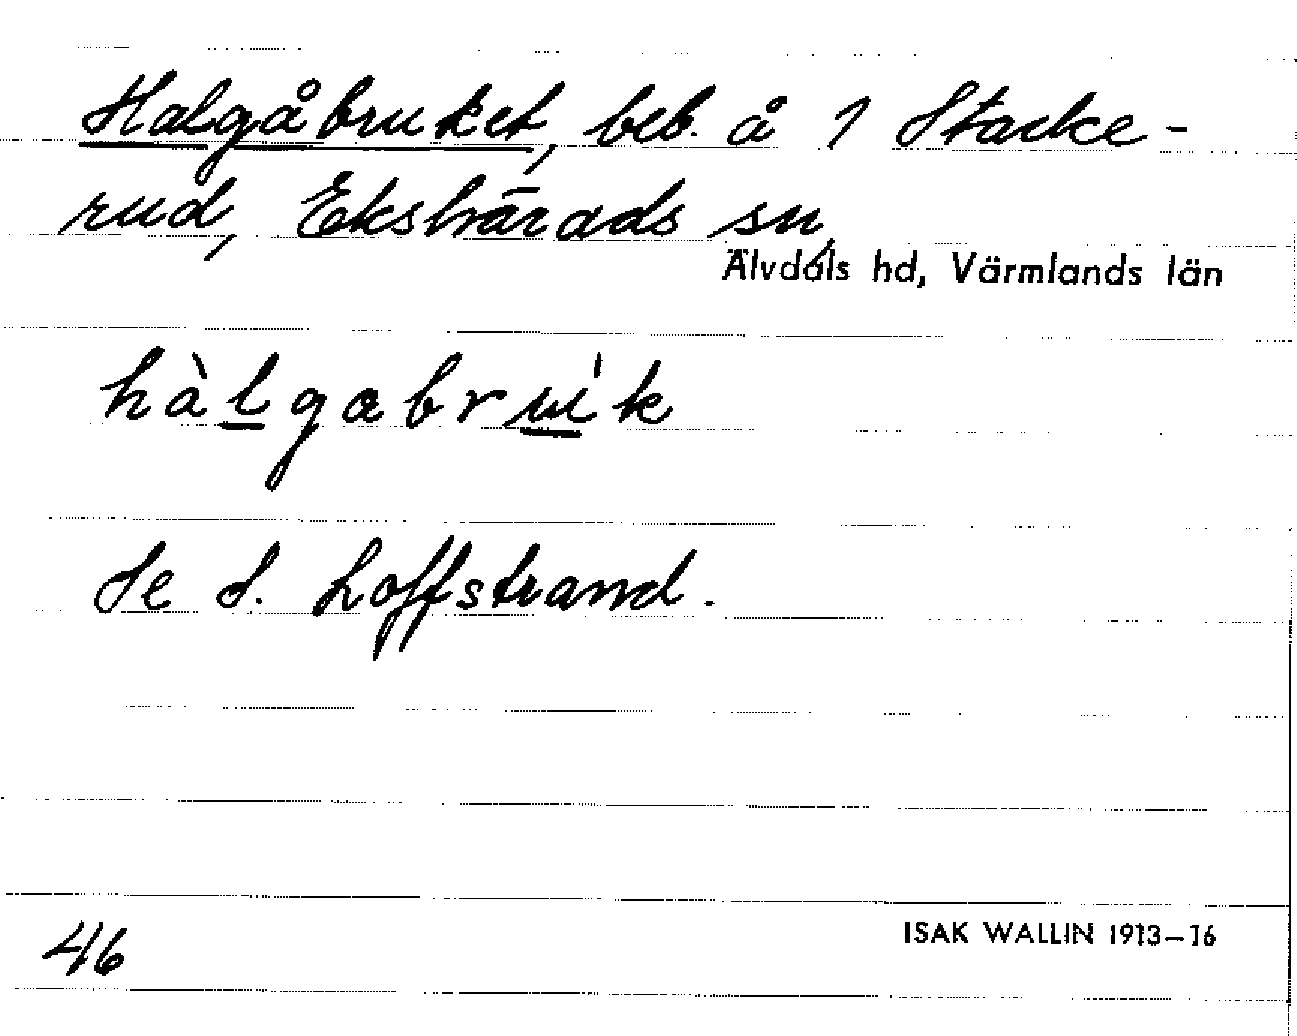 Halgåbruket, beb. å 1 Stacke-
rud, Ekshärads sn,
Älvdals hd, Värmlands län
hàlgabruík
Se S. Loffstrand.
46
ISAK WALLIN 1913–16